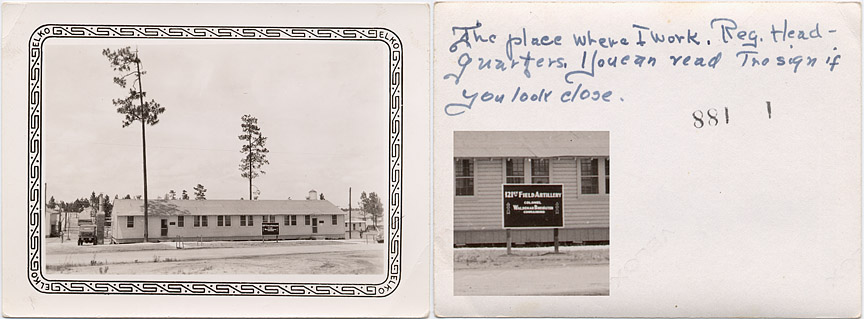 ELKO
ELKO
ELKO
ELKO
The place where I work. Reg. Head-
quarters. You can read The sign if
you look close.
881 1
121ST FIELD ARTILLERY
COLONEL
WALDEMAR BREIDSTER
COMMANDING